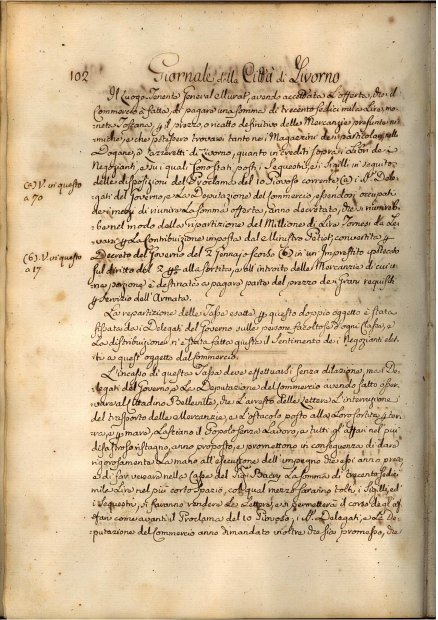 102 Giornale della Città di Livorno
Il Luogo Tenente General Murat, avendo accettata l'offerta, che il
Commercio à fatta, di pagare una somma di trecento sedici mila Lire, mo-
neta Toscana, p il prezzo, o ricatto definitivo delle Mercanzie presunte ni-
miche, e che potessero trovarsi tanto nei Magazzini dei particolari, nelle
Dogane, o Lazzeretti di Livorno, quanto in crediti sopra i
Negozianti, e sui quali sono stati posti i Sequestri, e i Sigilli in seguito
(a) V. in questo
a 70
delle disposizioni del Proclama del 10 Piovoso corrente (a): i SS. De-
gati del Governo, e La Deputazione del Commercio, essendosi occupati
dei mezzi di riunire La somma offerta, anno decretato, che si riunireb-
be nel modo della ripartizione del Millione di Lire Tornesi da Le-
varsi p La Contribuzione imposta dal Ministro Petiet, convertita p
(b) V. in questo
a 17
Decreto del Governo del 2 Gennajo scorso (b) in un Imprestito
sul diritto del 2 p alla sortita, e all'introito delle Mercanzie di cui una
porzione è destinata a pagare parte del prezzo dei Grani requisiti
p servizio dell'Armata.
La repartizione delle Tasse esatte p questo doppio oggetto è stata
fissata dai Delegati del Governo sulle persone facoltose d'ogni classe, e
La distribuzione n'è stata fatta giusta il sentimento dei Negozianti elet-
ti a quest'oggetto dal Commercio.
L'incasso di questa Tassa deve effettuarsi senza dilazione, ma i De-
legati del Governo, e La Deputazione del Commercio avendo fatto osser-
vare al Cittadino Belleville, che L'arresto delle Lettere, L'interruzione
del trasporto delle Mercanzie, e L'ostacolo posto alla Loro sortita p ter-
ra, e p mare, Lasciano il Popolo senza Lavoro, e tutti gli affari nel più
disastroso ristagno, anno proposto, e promettono in conseguenza di dare
rigorosamente La mano all'esecuzione dell'impegno che essi anno preso
di far versare nella Cassa del Sig. Bacry La somma di trecento sedici
mila Lire nel più corto spazio, col qual mezzo saranno tolti i Sigilli, ed
i Sequestri, si faranno vendere Le Lettere, e si permetterà il corso degli af-
fari come avanti il Proclama del 10 Piovoso; i SS. Delegati, e La De-
putazione del Commercio anno dimandato inoltre che sia promesso, che